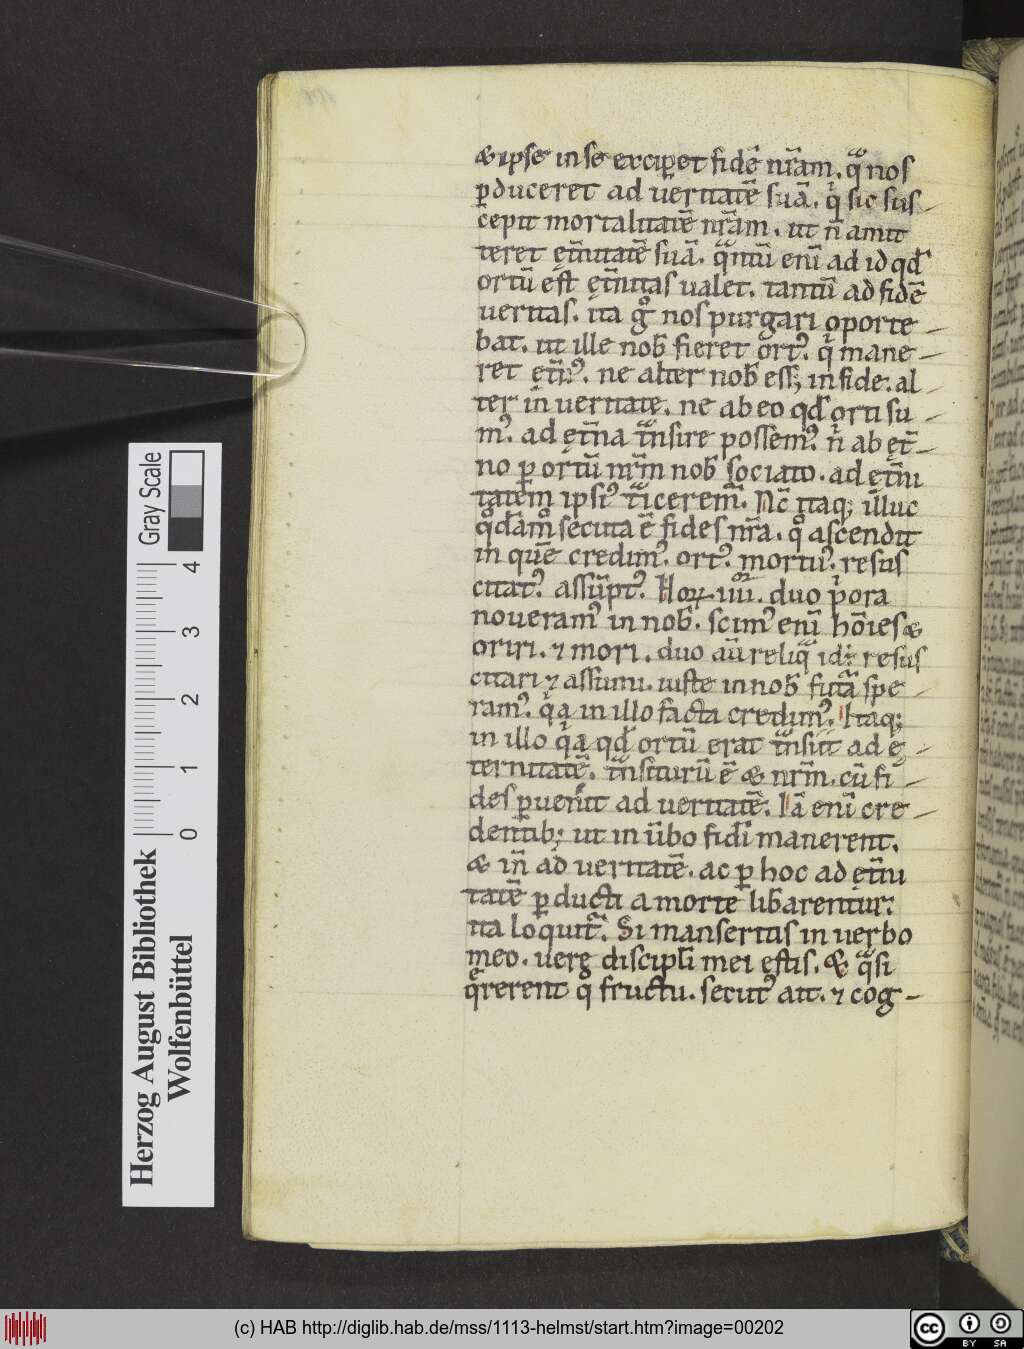 & ipse in se exciperet fidē nr̄am. qͣ nos
ꝑduceret ad ueritatē suā. qͥ sic sus
cepit mortalitatē nr̄am. ut n̄ amit
teret et̄nitatē suā. qͣntū enī ad id qd̄
ortū est et̄nitas ualet. tantū ad fidē
ueritas. ita gͦ nos purgari oporte
bat. ut ille nob̄ fieret ortꝰ. qͥ mane
ret et̄nꝰ. ne alter nob̄ ess; in fide. al
ter in ueritate. ne ab eo qd̄ orti su
mꝰ. ad ęt̄na tͣnsire possemꝰ. nͥ ab ęt̄
no ꝑ ortū nr̄m nob̄ sociato. ad ęt̄ni
tatem ipsiꝰ tͣicerem̄. Nc̄ itaq; illuc
qͦdāmͦ secuta ē fides nr̄a. qͦ ascendit
in quē credimꝰ. ortꝰ. mortuꝰ. resus
citatꝰ. assūptꝰ. Hoꝝ iiiiᵒʳ. duo pͥora
noueramꝰ in nob̄. scimꝰ enī hōies &
oriri. ⁊ mori. duo aū reliqͣ id; resus
citari ⁊ assumi. iuste in nob̄ futͣa spe
ramꝰ. qͥa in illo facta credimꝰ. Itaq;
in illo qͥa qd̄ ortū erat tͣnsiit ad ę
ternitatē. tͣnsiturū ē & nr̄m. cū fi
des ꝑuenīt ad ueritatē. Iā enī cre
dentib; ut in ūbo fidī manerent.
& in̄ ad ueritatē. ac ꝑ hoc ad ęt̄ni
tatē ꝑducti a morte lib̄arentur.
ita loquitͣ. Si manseritis in uerbo
meo. uere discipl̄i mei estis. & qͣsi
qͣrerent q fructu. secutꝰ ait. ⁊ cog
Herzog August Bibliothek
Wolfenbüttel
Gray Scale
0 1 2 3 4
(c) HAB http://diglib.hab.de/mss/1113-helmst/start.htm?image=00202
cc BY SA